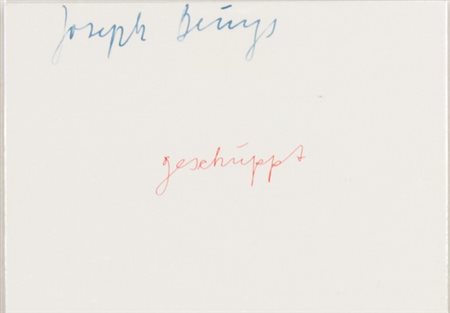 Joseph Beuys
geschuppt